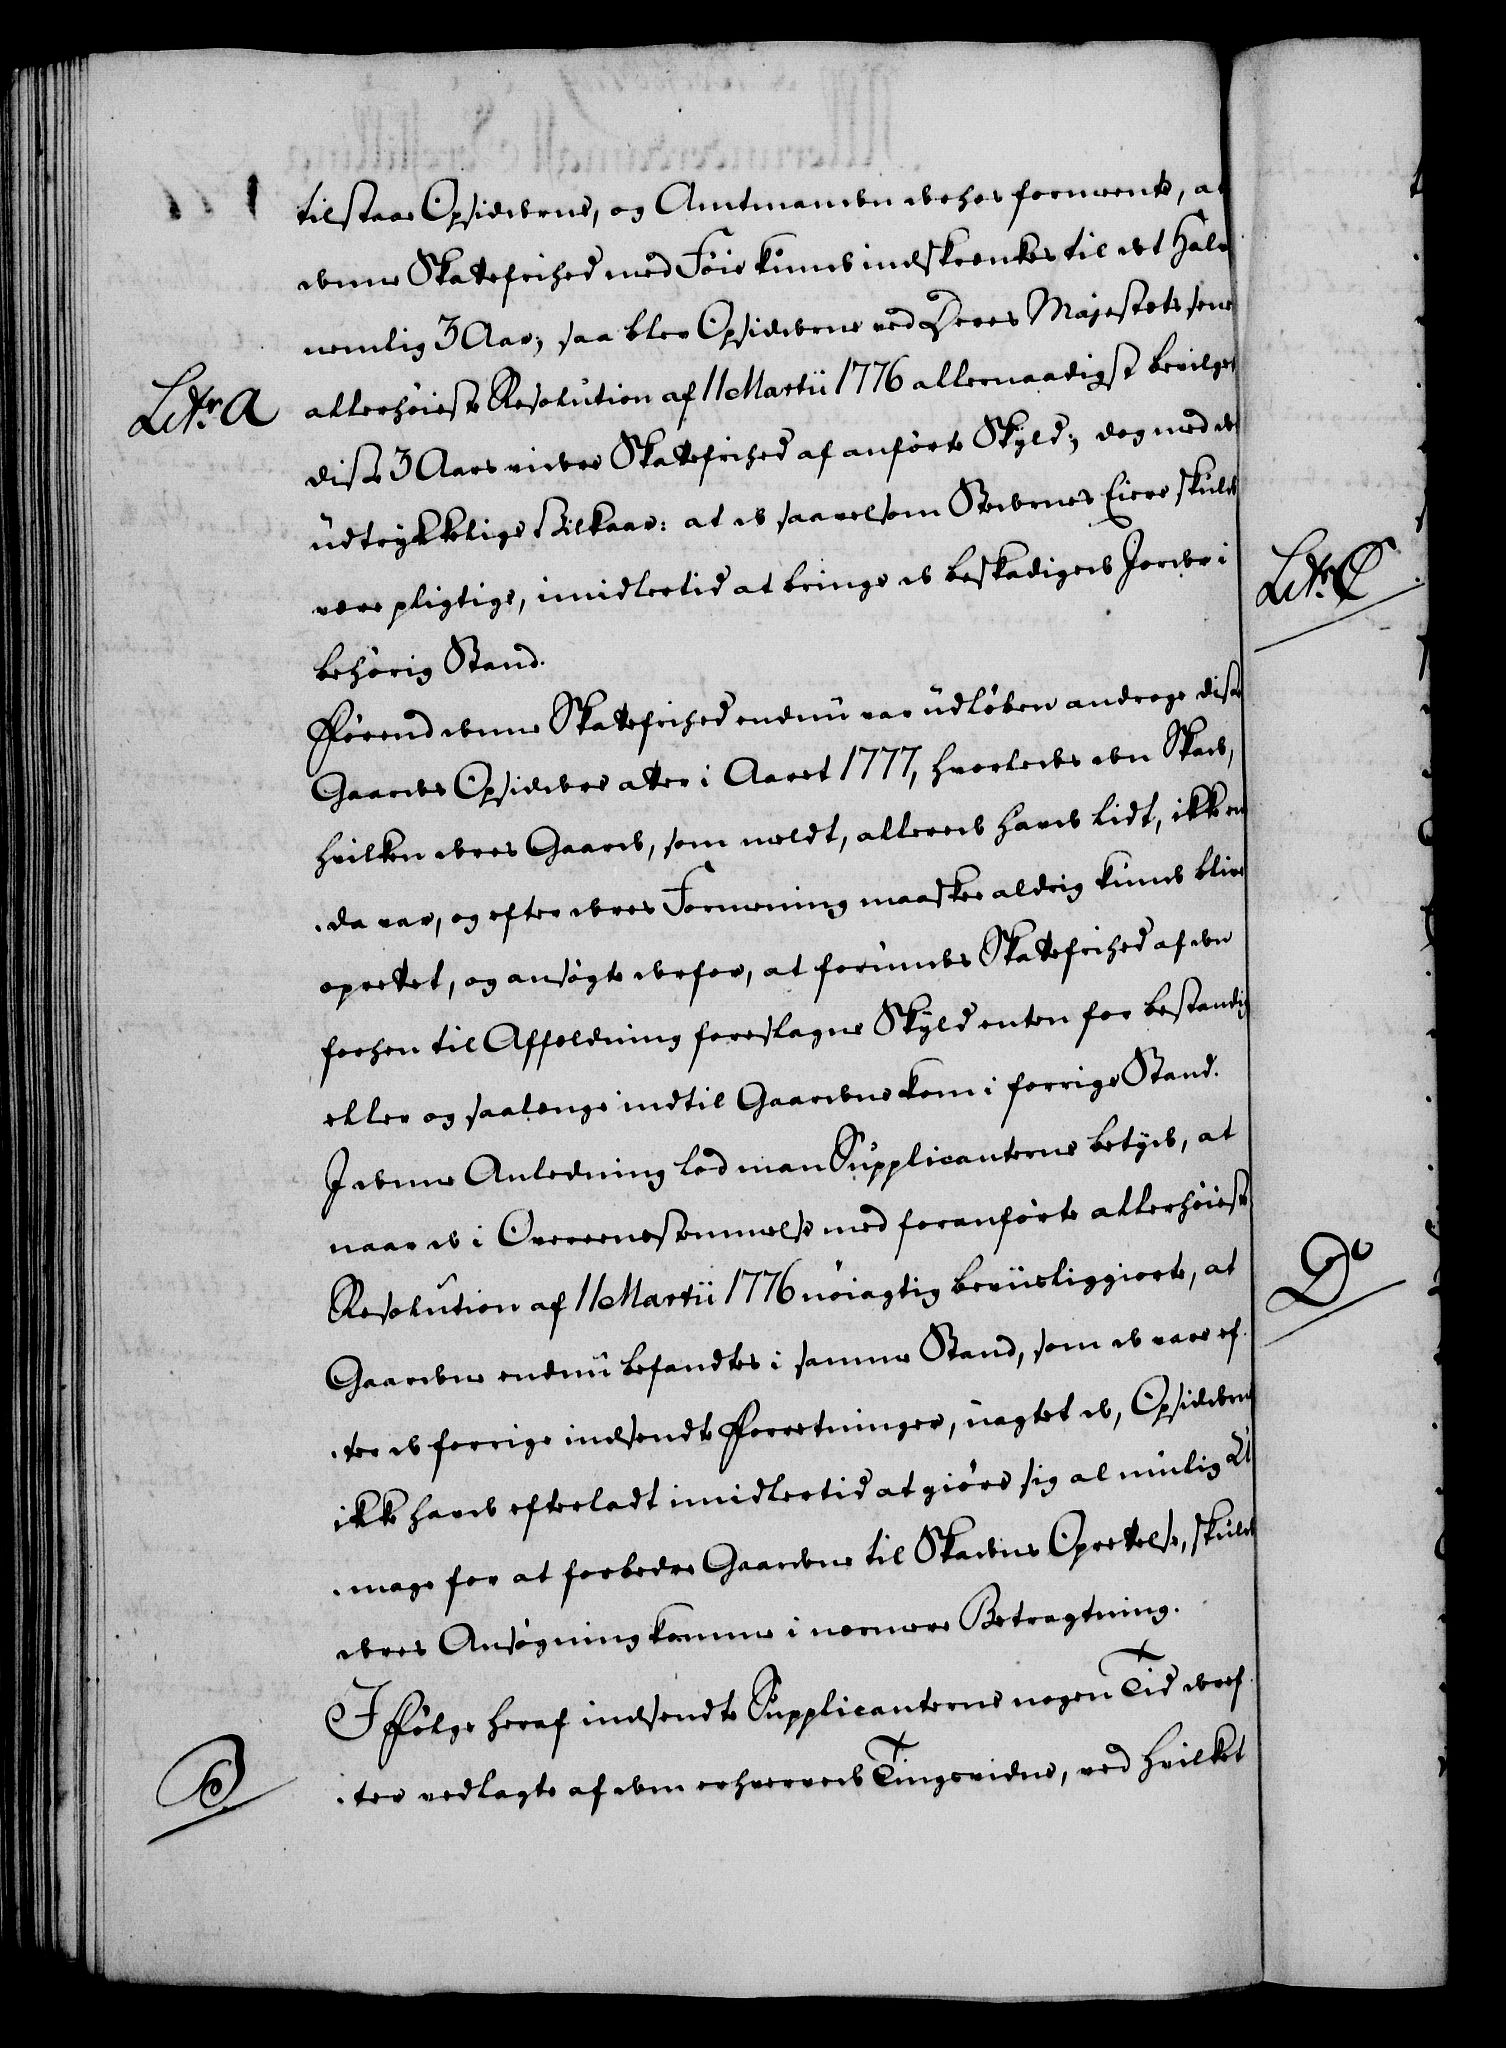 tilstaae Opsidderne, og Amtmanden derhos formeente, at
denne Skattefrihed med Föie kunde indskrænkes til det halve
nemlig 3 Aar; saa blev Opsidderne ved Deres Majestets sene
Litr. A
allerhöieste Resolution af 11 Martii 1776 allernaadigst bevilget
disse 3 Aars videre Skattefrihed af anförte Skyld; dog med det
üdtrykkelige Vilkaar: at de saavelsom Stedernes Eiere skulde
være pligtige, imidlertid at bringe de beskadigede Jorder i
behörig Stand.
Litr. C
Förend denne Skattefrihed endnü var üdlöben androge disse
Gaardes Opsiddere atter i Aaret 1777, hvorledes den Skade,
hvilken deres Gaarde, som meldt, allerede havde lidt, ikke en
da var, og efter deres Formening maaskee aldrig kunde blive
oprettet, og ansögte derfor, at forundes Skattefrihed af den
forhen til Affældning foreslagne Skyld enten for bestandig
eller og saalænge indtil Gaardene kom i forrige Stand.
I denne Anledning lod man Supplicanterne betyde, at
naar de i Overeenstemmelse med foranförte allerhöieste
Resolution af 11 Martii 1776 nöiagtig beviisliggiorte, at
D
Gaardene endnü befandtes i samme Stand, som de vare ef
ter de forrige indsendte Forretninger, uagtet de, Opsidderne
ikke havde efterladt imidlertid at giöre sig al muelig U
mage for at forbedre Gaardene til Skadens Oprettelse, skulde
deres Ansögning komme i nærmere Betragtning.
I Fölge heraf indsendte Supplicanterne nogen Tid deref
ter vedlagte af dem erhvervede Tingsvidne, ved hvilket